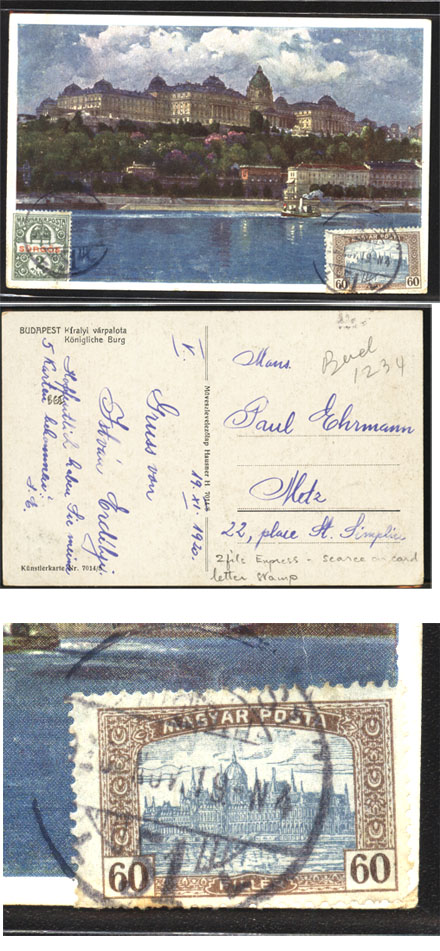 MAGYAR POSTA
SÜRGŐS
2
MAGYAR POSTA
60 60
BUDAPEST Királyi várpalota
Königliche Burg
V.
19. XI. 1920.
Gruss von
István Erdélyi
Hoffentlich haben Sie meine
5 Karten bekommen.
Künstlerkarte Nr. 7014/5
Művészlevelezőlap Hausner H 7014/5
Bud
1234
Mons.
Paul Ehrmann
Metz
22, place St. Simplice
2 file Express - scarce on card
letter stamp
MAGYAR POSTA
60 60
FILLÉR